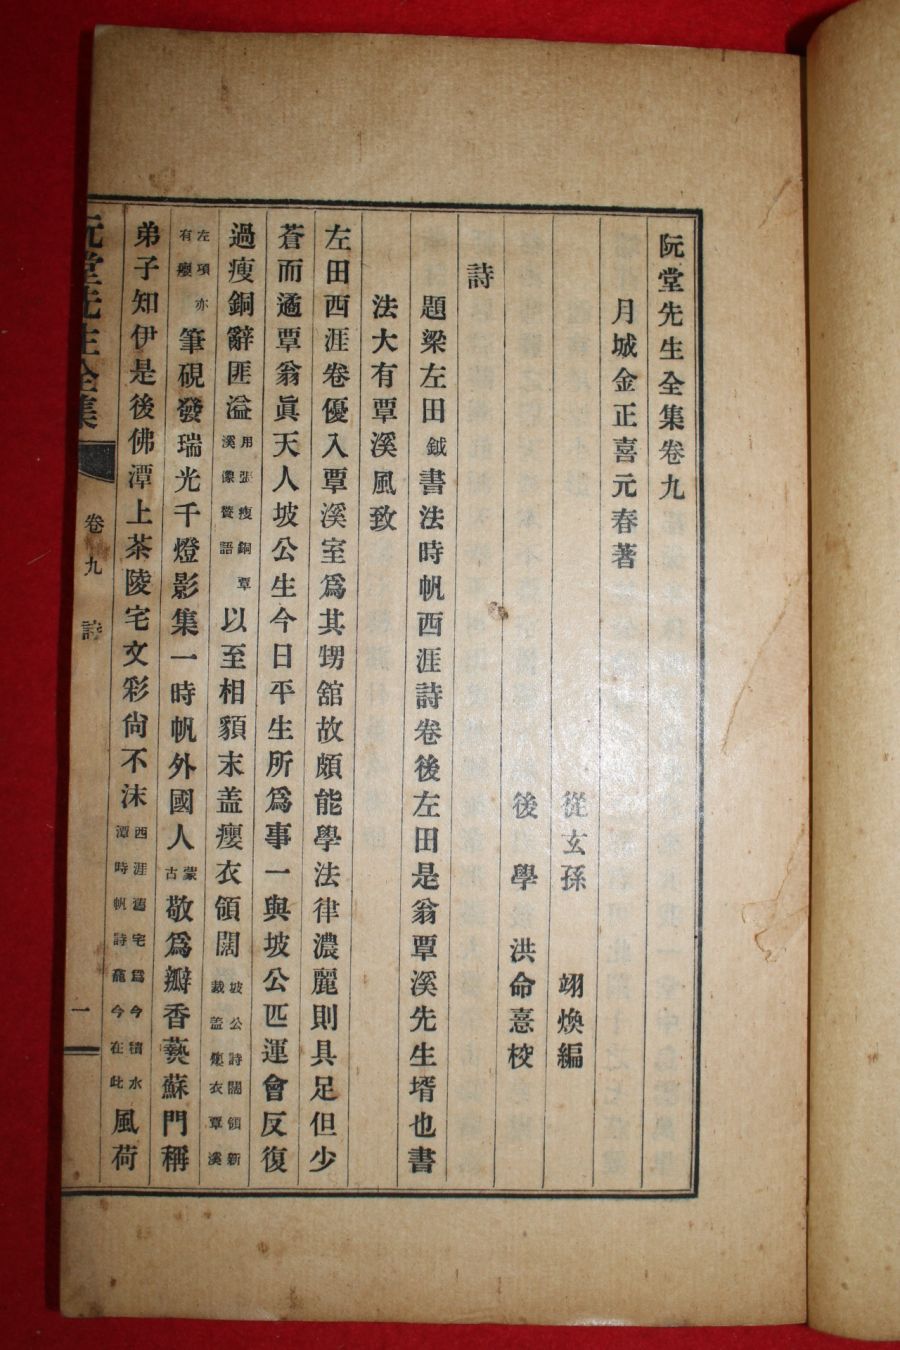 阮堂先生全集卷九
月城金正喜元春著
從玄孫 翊煥編
後學 洪命憙校
詩
題梁左田鉞書法時帆西涯詩卷後左田是翁覃溪先生壻也書
法大有覃溪風致
左田西涯卷優入覃溪室爲其甥舘故頗能學法律濃麗則具足但少
蒼而遹覃翁眞天人坡公生今日平生所爲事一與坡公匹運會反復
過瘦銅辭匪溢用張瘦銅覃溪像贊語以至相貌末盖癭衣領闊坡公詩闊領新裁盖癭衣覃溪
左項亦有癭筆硯發瑞光千燈影集一時帆外國人蒙古敬爲瓣香藝蘇門稱
弟子知伊是後佛潭上茶陵宅文彩尙不沫西涯舊宅爲今積水潭時帆詩龕今在此風荷
阮堂先生全集 卷九 詩 一